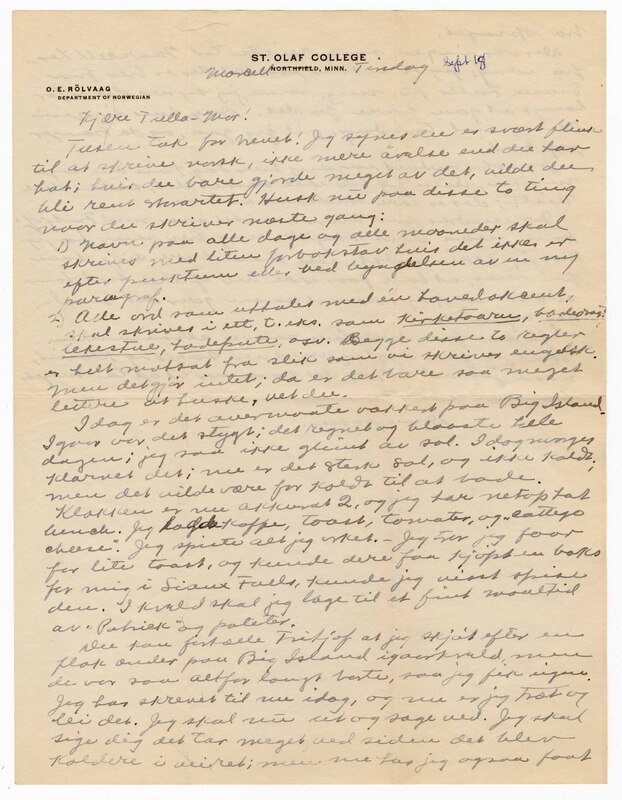 ST. OLAF COLLEGE
NORTHFIELD, MINN.
Marcell Tirsdag Sept 18
O. E. RÖLVAAG
DEPARTMENT OF NORWEGIAN
Kjære Tulla-Mor!
Tusen tak for brevet! Jeg synes du er svært flink
til at skrive norsk, ikke mere øvelse end du har
hat; hvis du bare gjorde meget av det, vilde du
bli rent utvartet. Husk nu paa disse to ting
naar du skriver næste gang:
1) Navn paa alle dage og alle maaneder skal
skrives med liten forbokstav hvis det ikke er
efter punktum eller ved begyndelsen av en ny
paragraf.
2) Alle ord som uttales med én hovedaksent,
skal skrives i ett, t. eks. som kirketaarn, badedragt
lekestue, ladeport, osv. Begge disse to regler
er helt motsat fra slik som vi skriver engelsk.
Men det gjør intet; da er det bare saa meget
lettere at huske, vet du.
I dag er det overmaate vakkert paa Big Island.
Igaar var det stygt; det regnet og blaaste hele
dagen; jeg saa ikke glimt av sol. I dag morges
klarnet det; nu er det sterk sol, og ikke koldt,
men det vilde være for koldt til at bade.
Klokken er nu akkurat 2, og jeg har netop hat
lunch. Jeg hadde kaffe, toast, tomater, og "cottege
cheese". Jeg spiste alt jeg orket. - Jeg tror jeg faar
for lite toast, og kunde dere faa kjøpt en boks
for mig i Sioux Falls, kunde jeg visst spise
den. I kveld skal jeg lage til et fint maaltid
av "Patrick" og poteter.
Du kan fortælle Tritjof at jeg skjøt efter en
flok ænder paa Big Island igaarkveld, men
de var saa altfor langt borte, saa jeg fik ingen.
Jeg har skrevet til nu idag, og nu er jeg træt og
lei det. Jeg skal nu ut og sage ved. Jeg skal
sige dig det tar meget ved siden det blev
koldere i veiret; men nu har jeg ogsaa faat